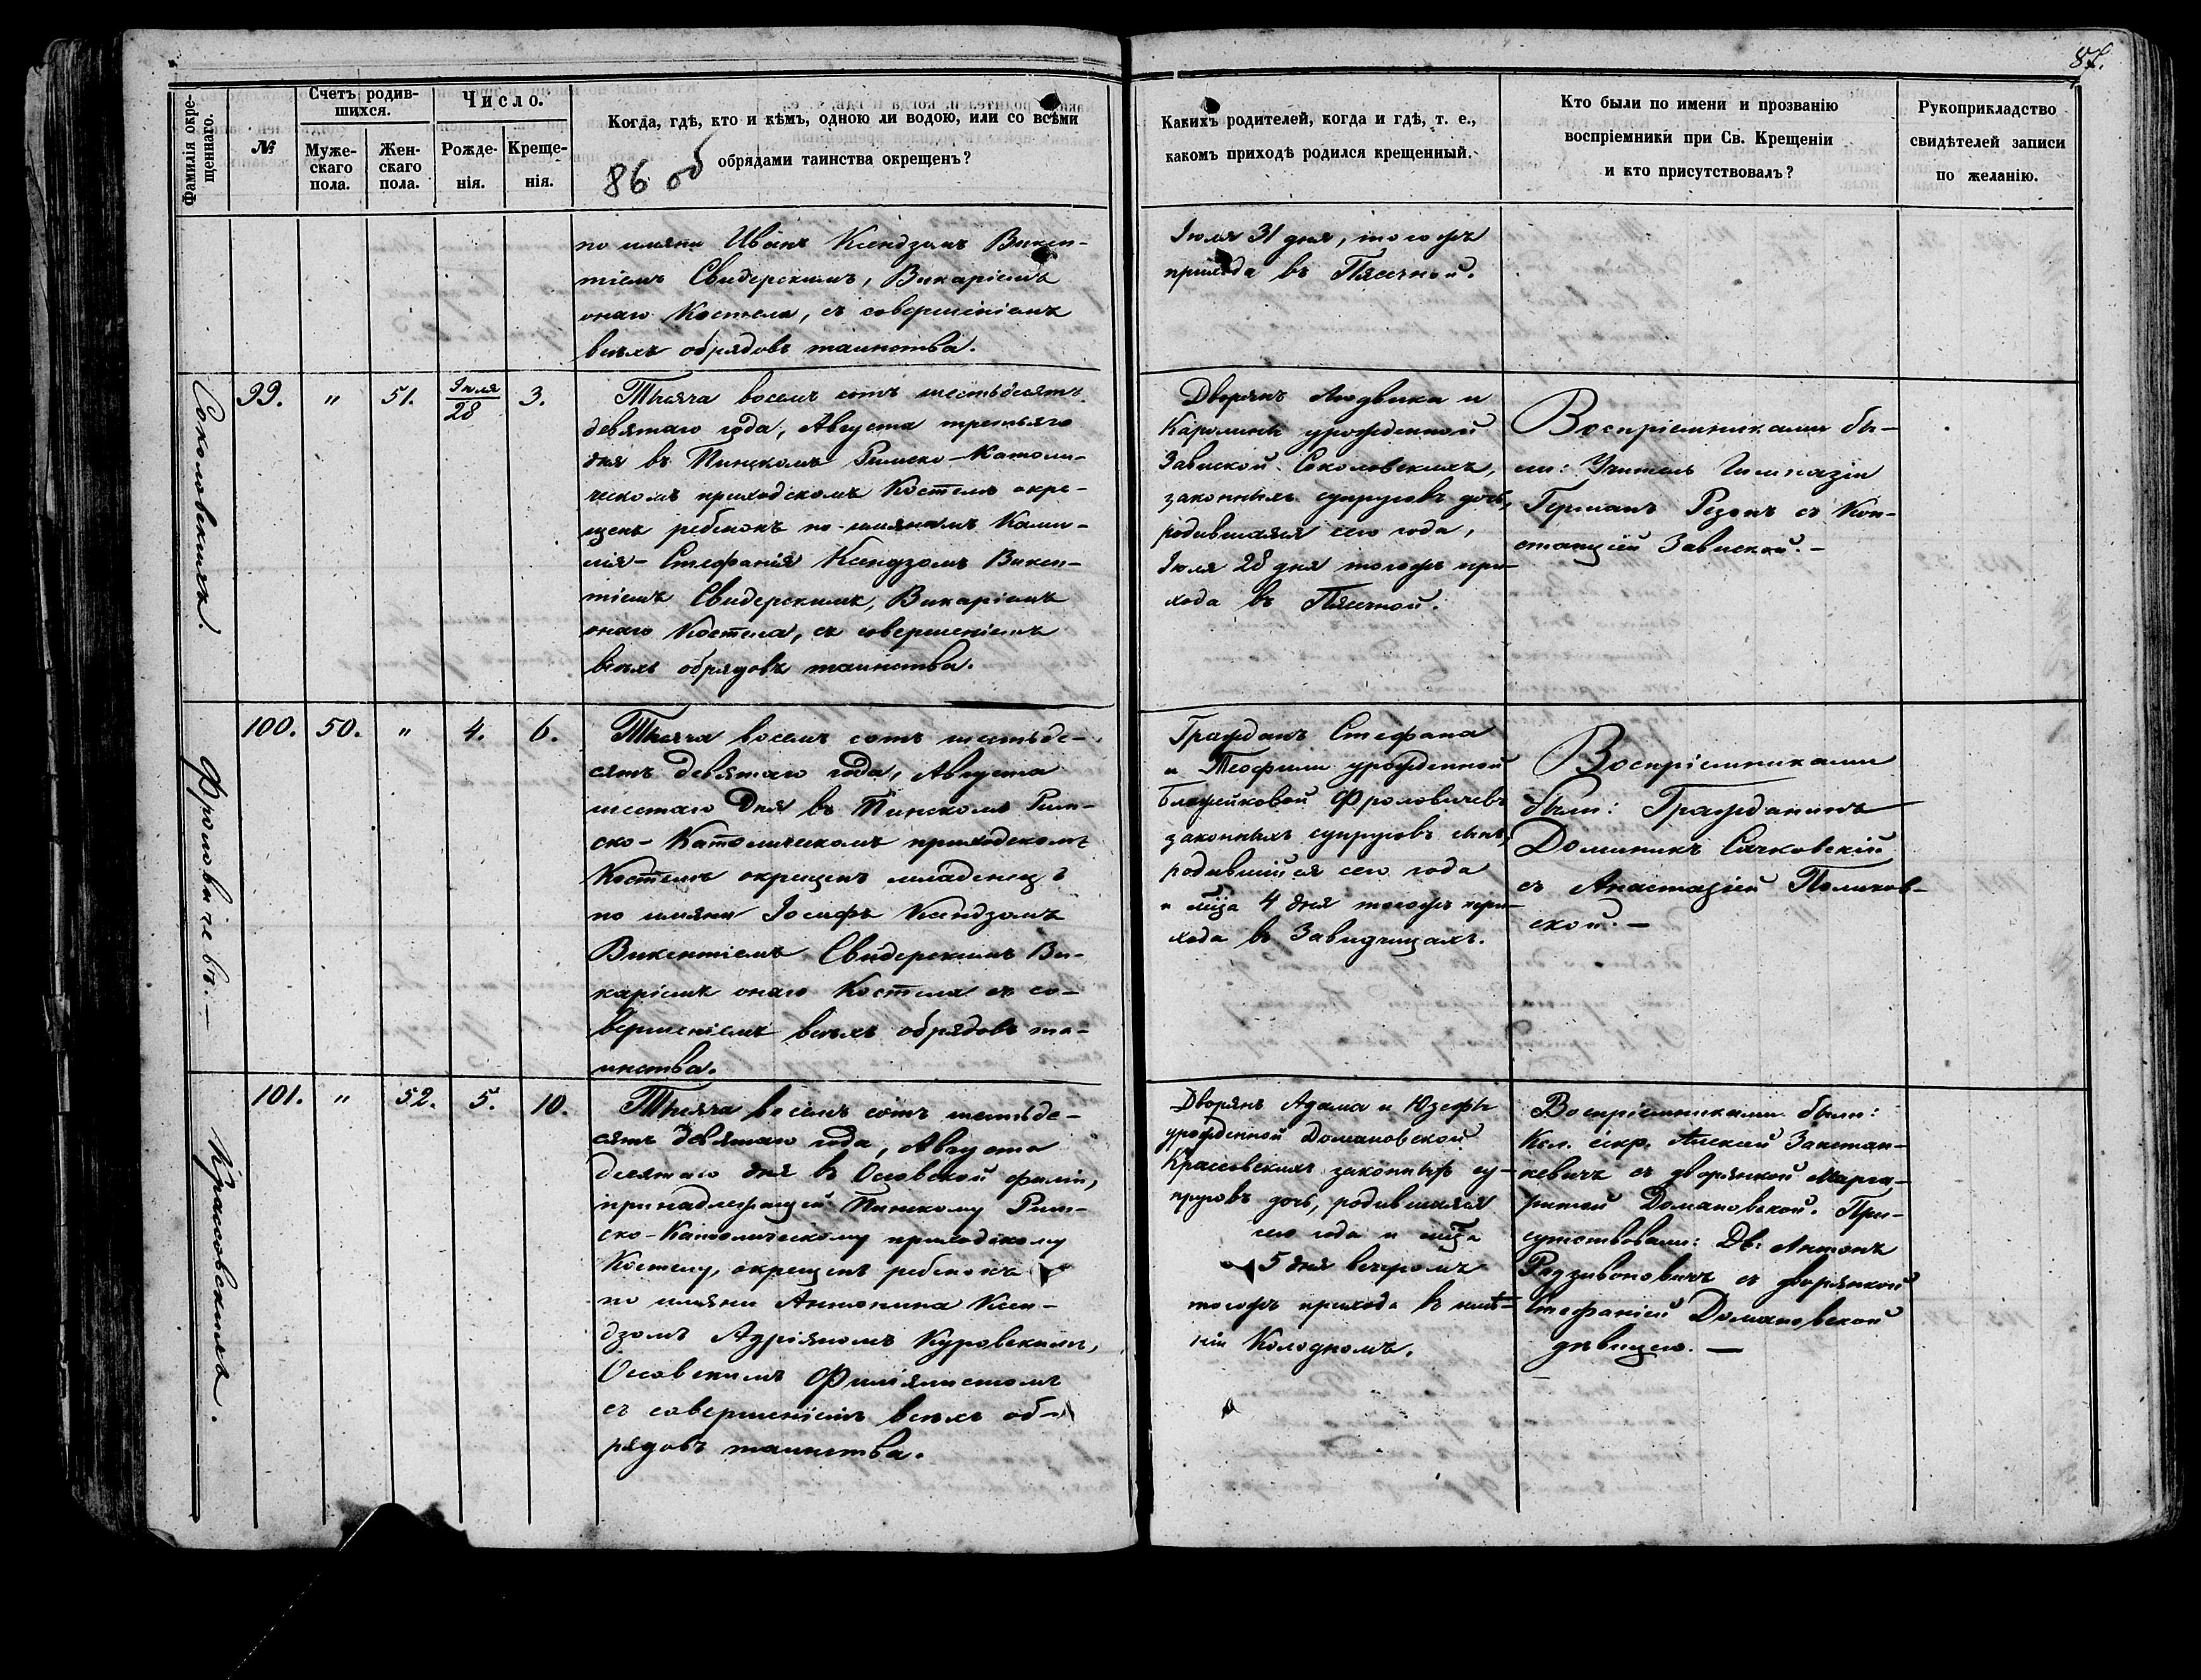 87.
Фамилія окре-
щеннаго.
№
Счетъ родив-
шихся.
Муже-
скаго
пола.
Жен-
скаго
пола.
Число.
Рожде-
нія.
Креще-
нія.
Когда, гдѣ, кто и кѣмъ, одною ли водою, или со всѣми
обрядами таинства окрещенъ?
86 об
Какихъ родителей, когда и гдѣ, т. е.,
какомъ приходѣ родился крещенный.
Кто были по имени и прозванію
воспріемники при Св. Крещеніи
и кто присутствовалъ?
Рукоприкладство
свидѣтелей записи
по желанію.
по имяни Иванъ Ксендзомъ Викен-
тіемъ Свидерскимъ, Викаріемъ
онаго Костела, съ совершеніемъ
всѣхъ обрядовъ таинства.
Іюля 31 дня, тогожъ
прихода въ Пясечной.
Соколовскихъ.
99.
"
51.
Іюля
28
3.
Тысяча восемь сотъ шестьдесятъ
девятаго года, Августа третьяго
дня въ Пинскомъ Римско-Католи-
ческомъ приходскомъ Костелѣ окре-
щенъ ребенокъ по имянамъ Ками-
лія-Стефанія Ксендзомъ Викен-
тіемъ Свидерскимъ, Викаріемъ
онаго Костела, съ совершеніемъ
всѣхъ обрядовъ таинства.
Дворянъ Людвика и
Каролины урожденной
Завиской Соколовскихъ,
законныхъ супруговъ дочь,
родившаяся сего года,
Іюля 28 дня тогожъ при-
хода въ Пясечной.
Воспріемниками бы-
ли: Учитель Гимназіи
Германъ Резонъ съ Кон-
станціей Завиской.-
Фроловичевъ.-
100.
50.
"
4.
6.
Тысяча восемь сотъ шестьде-
сятъ девятаго года, Августа
шестаго дня въ Пинскомъ Рим-
ско-Католическомъ приходскомъ
Костелѣ окрещенъ младенецъ
по имяни Іосифъ Ксендзомъ
Викентіемъ Свидерскимъ Ви-
каріемъ онаго Костела съ со-
вершеніемъ всѣхъ обрядовъ та-
инства.
Гражданъ Стефана
и Теофили урожденной
Блажейковой Фроловичевъ
законныхъ супруговъ сынъ,
родившійся сего года
и мѣца 4 дня тогожъ при-
хода въ Завидчицахъ.
Воспріемниками
были: Гражданинъ
Доминикъ Сачковскій
съ Анастазіей Поляков-
ской.-
Красовскихъ.
101.
"
52.
5.
10.
Тысяча восемь сотъ шестьде-
сятъ девятаго года, Августа
десятаго дня въ Осовской филіи,
принадлежащей Пинскому Рим-
ско-Католическому приходскому
Костелу, окрещенъ ребенокъ
по имяни Антонина Ксен-
дзомъ Адріяномъ Куровскимъ,
Осовскимъ Филіялистомъ
съ совершеніемъ всѣхъ об-
рядовъ таинства.
Дворянъ Адама и Юзефы
урожденной Домановской
Красовскихъ законныхъ су-
пруговъ дочь, родившаяся
сего года и мѣца
5 дня вечеромъ
тогожъ прихода въ имѣ-
ніи Колодномъ.
Воспріемниками были:
Кол. секр. Алексей Занеман-
кевичъ съ дворянкой Марга-
ритой Домановской. При-
сутствовали: Дв: Антонъ
Радзивоновичъ съ дворянкой
Стефаніей Домановской
дѣвицею.-